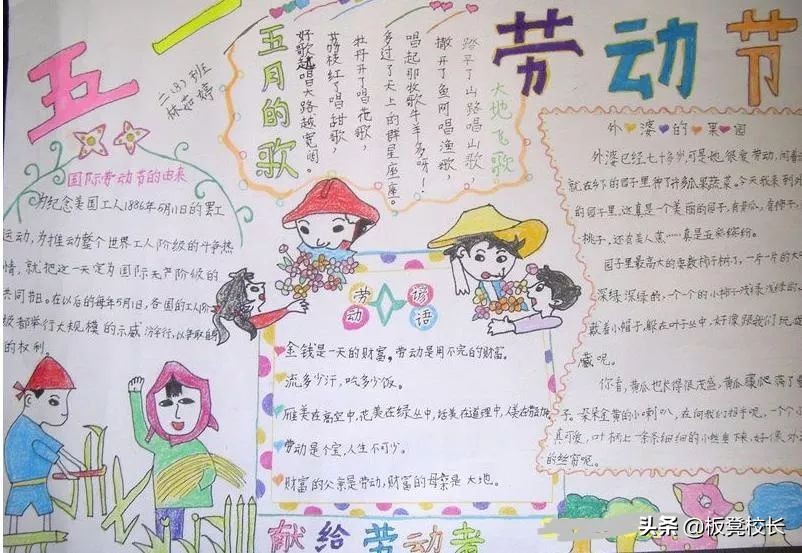 五一
劳动节
二.(8)班
林茹婷
国际劳动节的由来
为纪念美国工人1886年5月1日的罢工
运动,为推动整个世界工人阶级的斗争热
情,就把这一天定为国际无产阶级的
共同节日。在以后的每年5月1日,各国的工人阶
级都举行大规模的示威游行,以争取自
的权利。
五月的歌
大地飞歌
踏平了山路唱山歌,
撒开了鱼网唱渔歌,
唱起那牧歌牛羊多呀!
多过了天上的群星座座。
牡丹开了唱花歌,
荔枝红了唱甜歌,
好歌越唱大路越宽阔。
劳动谚语
金钱是一天的财富。劳动是用不完的财富。
流多少汗,吃多少饭。
雁美在高空中,花美在绿丛中,话美在道理中,人美在
劳动是个宝,人生不可少。
财富的父亲是劳动,财富的母亲是大地。
外婆的果园
外婆已经七十多岁,可是她很爱劳动,闲着
就在乡下的园子里种了许多瓜果蔬菜。今天我来到外
的园子里,这真是一个美丽的园子,有黄瓜,有柿子,
桃子,还有美人蕉……真是五彩缤纷。
园子里最高大的要数柿子树了,一片一片的大
深绿深绿的,一个个的小柿子浅绿浅绿的
戴着小帽子,躲在叶子丛中,好像跟我们玩
藏呢。
你看,黄瓜也长得很茂盛,黄瓜藤爬满了
子。朵朵金黄的小喇叭,在向我们招手呢,一个个
真可爱,叶柄上一条条细细的小丝垂下来,好像
的丝窗呢。
献给劳动者
头条 @板凳校长